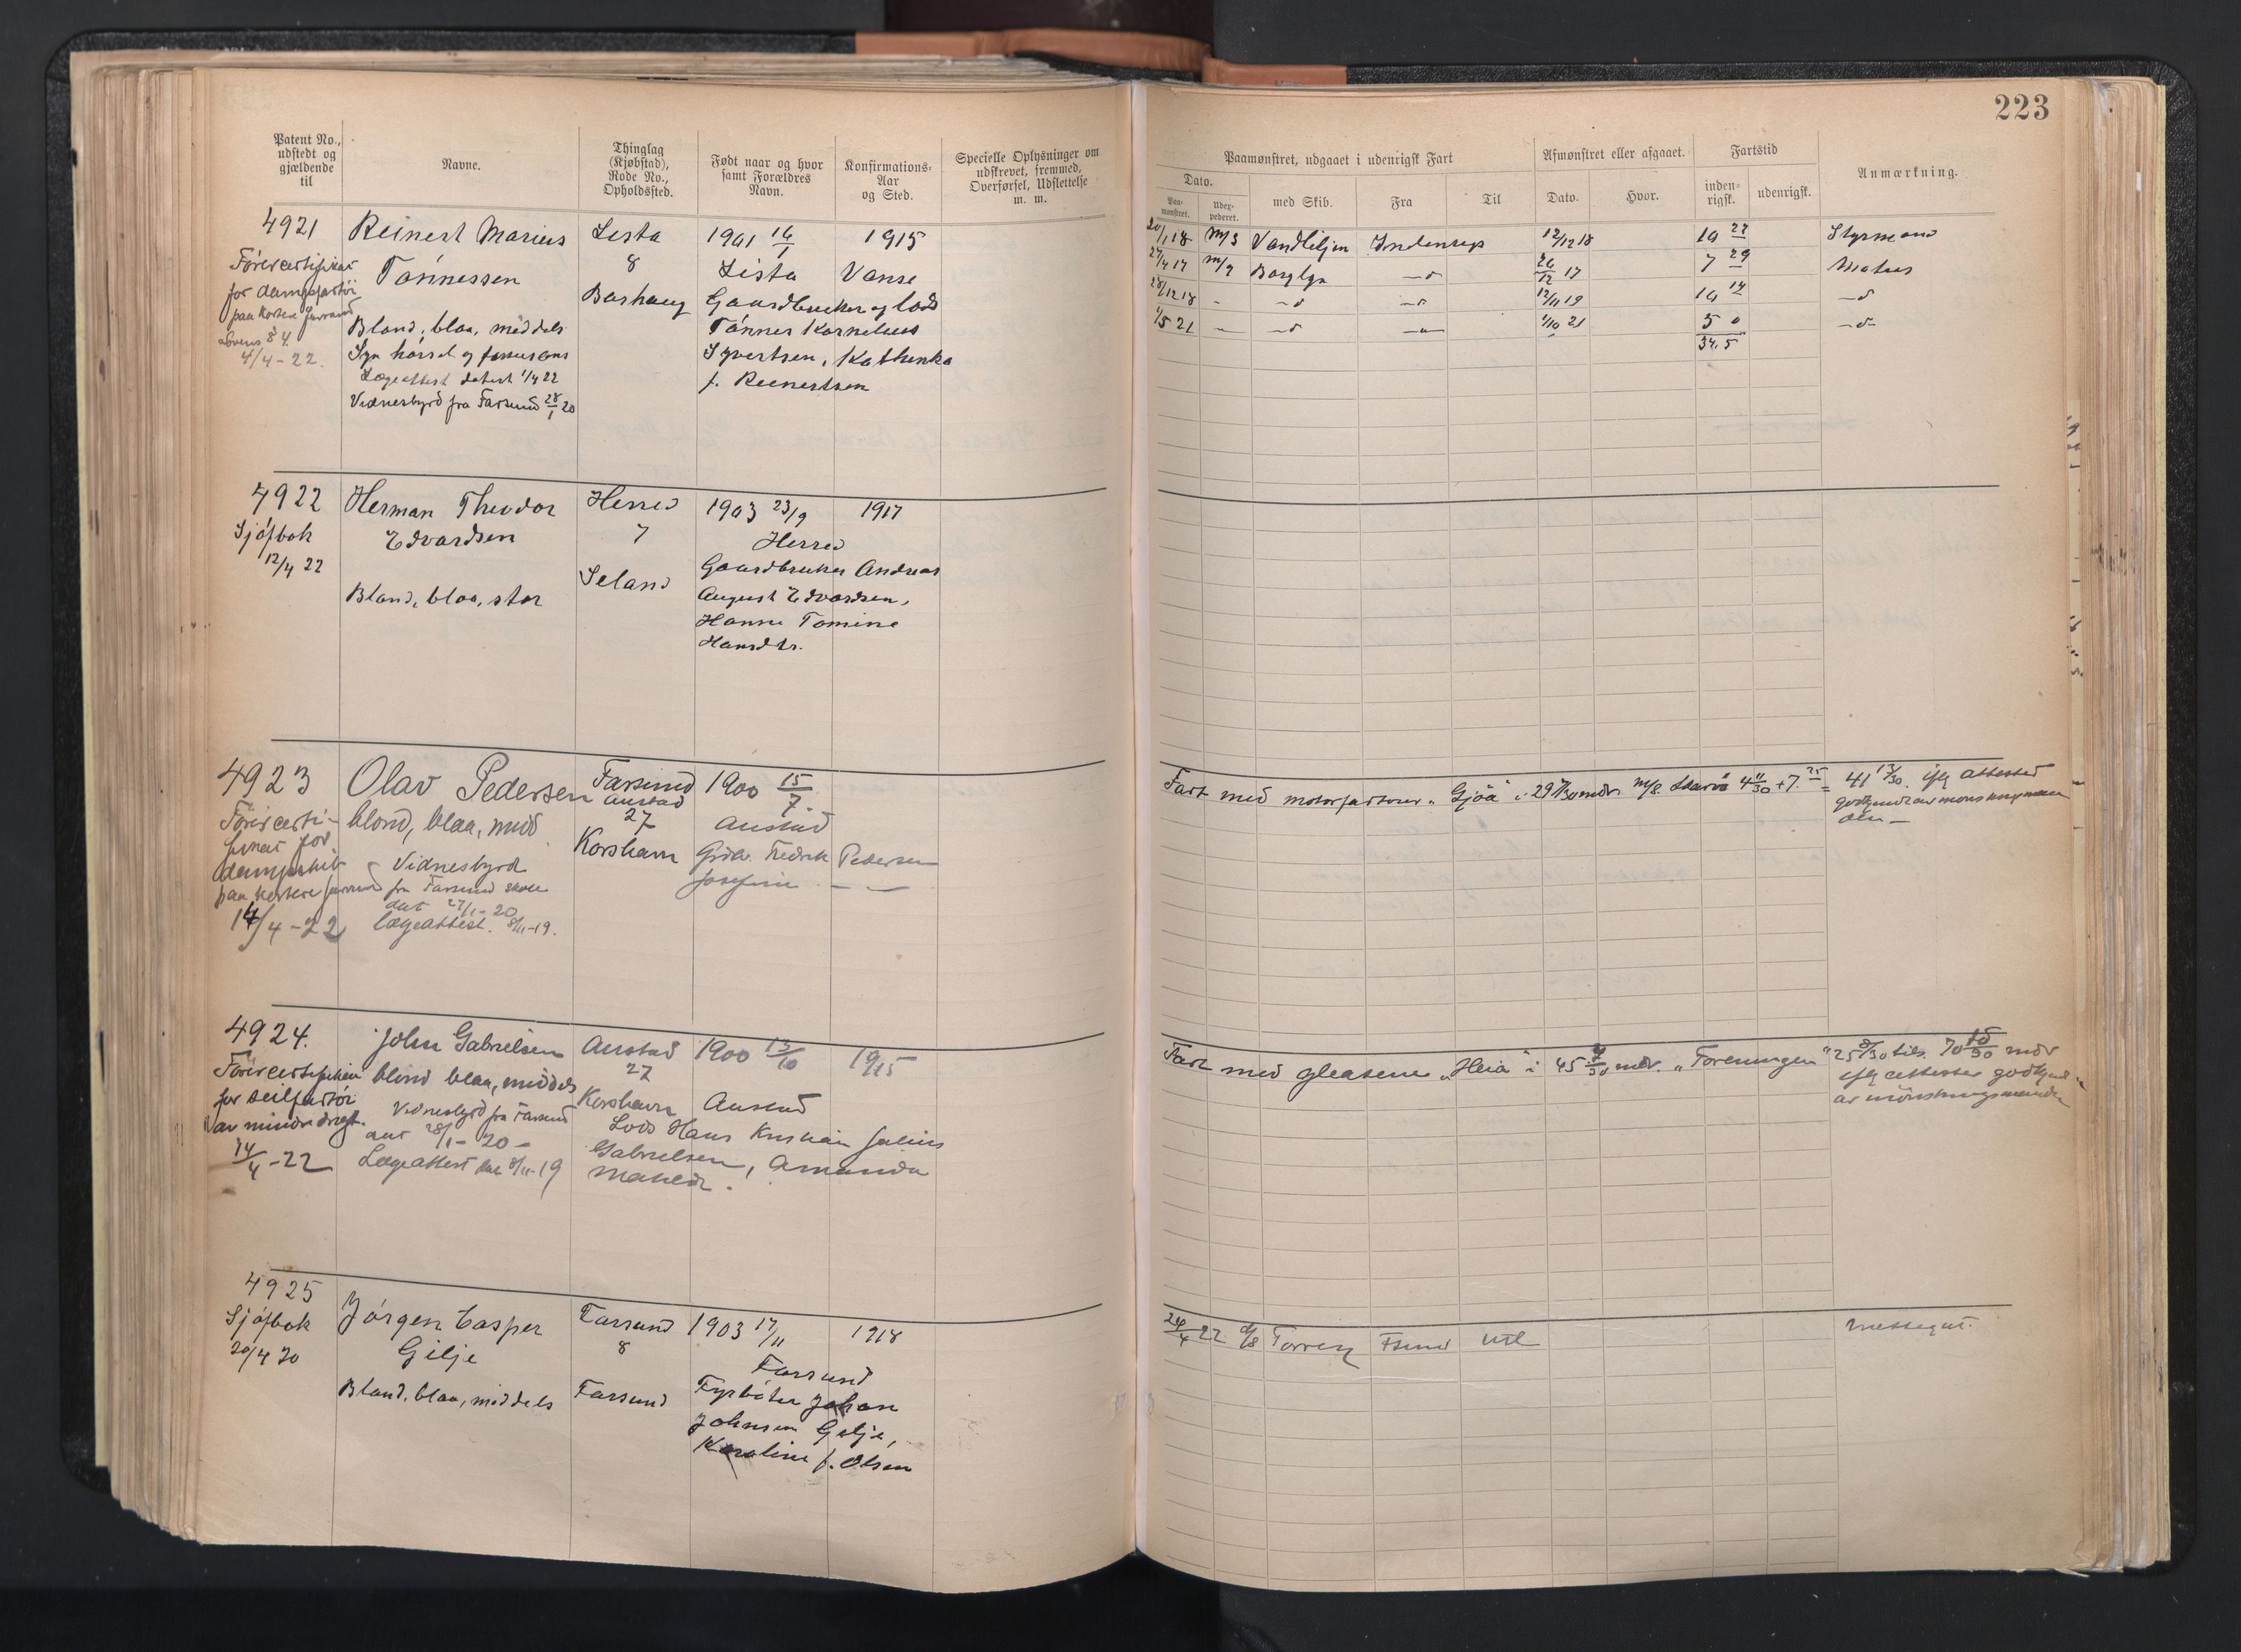 223
Patent No., udstedt og gjældende til
Navne.
Thinglag (Kjøbstad), Rode No., Opholdssted.
Født naar og hvor samt Forældres Navn.
Konfirmations-Aar og Sted.
Specielle Oplysninger om udskrevet, fremmed, Overførsel, Udslettelse m. m.
Paamønstret, udgaaet i udenrigsk Fart
Dato.
Paamønstret.
Udexpederet.
med Skib.
Fra
Til
Afmønstret eller afgaaet.
Dato.
Hvor.
Fartstid
indenrigsk.
udenrigsk.
Anmærkning.
4921 Reinert Marius Lista 1901 16/1 1915
Førercertifikat Tønnessen 8 Lista Vanse
for dampfartøi Barhaug Gaardbruker og lods
Bland, blaa, middels Tønnes Kornelius
lovens § 4.
4/4-22. Syvertsen, Kathinka
Lægeattest datert 1/4 22 f. Reinertsen
Vidnesbyrd fra Farsund 28/1 20
20/1 18 M/S Vandliljen Indenrigs 12/12 18 Styrmand
27/4 17 Borglyn —d 26/12 17 7 29 Matros
28/12 18 - —d —d 12/11 19 10 14 —d
1/5 21 — —d 1/10 21 5 0 —d—
34.5
4922 Herman Theodor Herred 1903 23/9 1917
Sjøfbok Edvardsen 7 Herred
12/4 22 Gaardbruker Andreas
Bland, blaa, stor Seland August Edvardsen,
Hanne Tomine
Hansdtr.
4923 Olav Pedersen Farsund 1900 15/7.
Austad
Førercerti- blond, blaa, midd 27 Austad
fikat for Korshavn Grdbr. Fredrik Pedersen
dampskib Vidnesbyrd Josefine — —
fra Farsund skole
dat 27/1-20
14/4-22 lægeattest. 8/11-19.
Fart med motorfartøier „Gjøa" i 29
41 13/30. iflg attester
4924. John Gabrielsen Austad 1900 13/10 19/15
Førercertifikat blond blaa, middels 27
for seilfartøi Korshavn Austad
av mindre drægt. Vidnesbyrd fra Farsund
dat 28/1-20- Lods Hans Kristian Julius
14/4-22 Lægeattest dat 8/11-19 Gabrielsen, Amanda
Fart med gleasene „Heia" i 45 mdr. „Foreningen" 25
iflg attester godkjent
av mønstringsmanden
4925 Jørgen Casper Farsund 1903 17/11 1918
Sjøfbok Gilje 8 Farsund
20/4 20 Fyrbøter Johan
Bland, blaa, middels Farsund Johnsen Gilje,
Karoline f. Olsen
24/4 22 Fsund Utl Messegut.